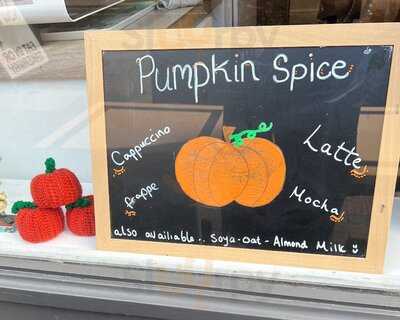 Pumpkin Spice
Cappuccino
Latte
frappe
Mocha
also available.. Soya-oat-Almond Milk